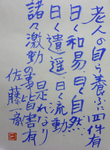 老人の自ら養ふに四件有り
曰く和易曰く自然
曰く逍遥曰く流動
是れなり
諸々激動の事皆害有り
佐藤一斎